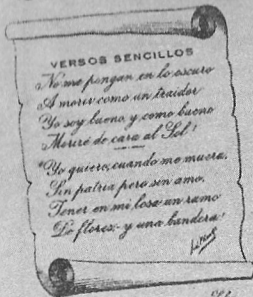 VERSOS SENCILLOS
No me pongan en lo oscuro
A morir como un traidor
Yo soy bueno y como bueno
Moriré de cara al Sol!
"Yo quiero, cuando me muera,
Sin patria pero sin amo,
Tener en mi losa un ramo
De flores,- y una bandera!